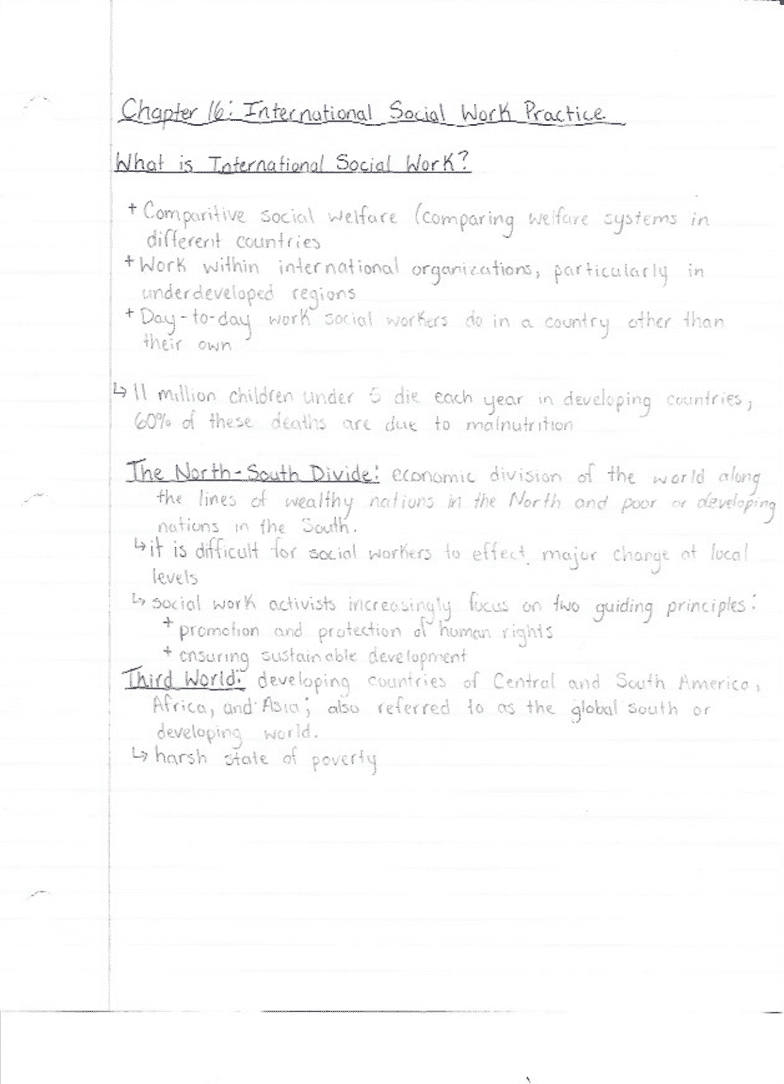 Chapter 16: International Social Work Practice
What is International Social Work?
+ Comparitive social welfare (comparing welfare systems in
different countries
+ Work within international organizations, particularly in
underdeveloped regions
+ Day-to-day work social workers do in a country other than
their own
↳ 11 million children under 5 die each year in developing countries;
60% of these deaths are due to malnutrition
The North-South Divide: economic division of the world along
the lines of wealthy nations in the North and poor or developing
nations in the South.
↳ it is difficult for social workers to effect major change at local
levels
↳ social work activists increasingly focus on two guiding principles:
+ promotion and protection of human rights
+ ensuring sustainable development
Third World: developing countries of Central and South America,
Africa, and Asia; also referred to as the global south or
developing world.
↳ harsh state of poverty